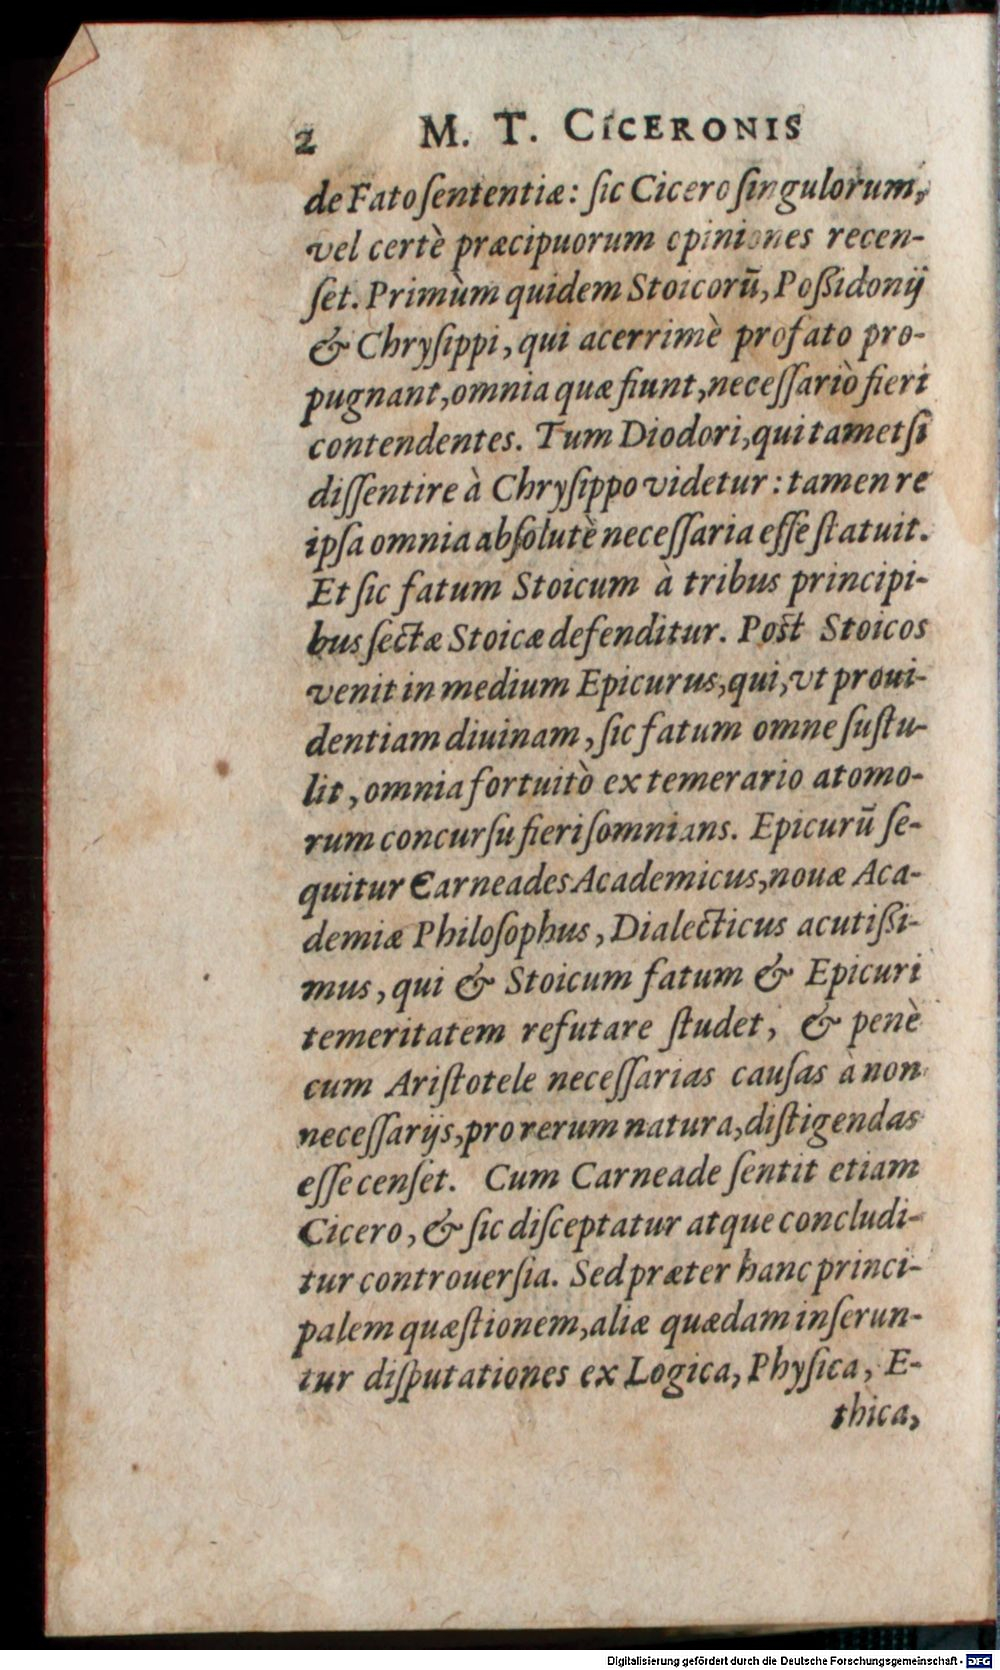 2 M. T. CICERONIS
de Fato ſententiæ: ſic Cicero ſingulorum,
vel certè præcipuorum opiniones recen-
ſet. Primùm quidem Stoicorū, Poßidonij
& Chryſippi, qui acerrimè pro fato pro-
pugnant, omnia quæ fiunt, neceſſariò fieri
contendentes. Tum Diodori, qui tametſi
diſſentire à Chryſippo videtur: tamen re
ipſa omnia abſolutè neceſſaria eſſe ſtatuit.
Et ſic fatum Stoicum à tribus principi-
bus ſectæ Stoicæ defenditur. Poſt Stoicos
venit in medium Epicurus, qui, vt proui-
dentiam diuinam, ſic fatum omne ſuſtu-
lit, omnia fortuitò ex temerario atomo-
rum concurſu fieri ſomnians. Epicurū ſe-
quitur Carneades Academicus, nouæ Aca-
demiæ Philoſophus, Dialecticus acutißi-
mus, qui & Stoicum fatum & Epicuri
temeritatem refutare ſtudet, & penè
cum Ariſtotele neceſſarias cauſas à non
neceſſarijs, pro rerum natura, diſtigendas
eſſe cenſet. Cum Carneade ſentit etiam
Cicero, & ſic diſceptatur atque concludi-
tur controuerſia. Sed præter hanc princi-
palem quæſtionem, aliæ quædam inſerun-
tur diſputationes ex Logica, Phyſica, E-
thica,
Digitalisierung gefördert durch die Deutsche Forschungsgemeinschaft - DFG